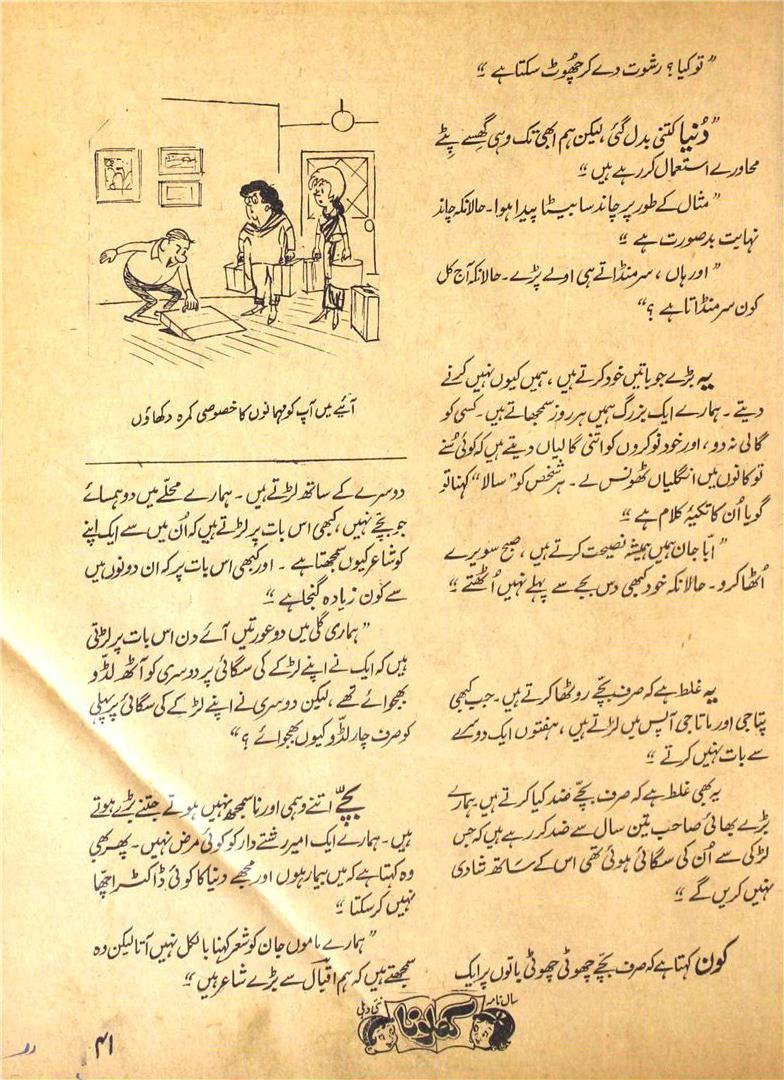 ”تو کیا؟ رشوت دے کر چھُوٹ سکتا ہے“
”دُنیا کتنی بدل گئی، لیکن ہم ابھی تک وہی گھِسے پِٹے
محاورے استعمال کر رہے ہیں“
”مثال کے طور پر چاند سا بیٹا پیدا ہوا۔ حالانکہ چاند
نہایت بدصورت ہے“
”اور ہاں، سر منڈاتے ہی اولے پڑے۔ حالانکہ آج کل
کون سر منڈاتا ہے؟“
یہ بڑے جو باتیں خود کرتے ہیں، ہمیں کیوں نہیں کرنے
دیتے۔ ہمارے ایک بزرگ ہمیں ہر روز سمجھاتے ہیں۔ کسی کو
گالی نہ دو، اور خود نوکروں کو اتنی گالیاں دیتے ہیں کہ کوئی سُنے
تو کانوں میں انگلیاں ٹھونس لے۔ ہر شخص کو ”سالا“ کہنا تو
گویا اُن کا تکیۂ کلام ہے“
”ابّا جان ہمیں ہمیشہ نصیحت کرتے ہیں، صبح سویرے
اُٹھا کرو۔ حالانکہ خود کبھی دس بجے سے پہلے نہیں اُٹھتے“
یہ غلط ہے کہ صرف بچّے روٹھا کرتے ہیں۔ جب کبھی
پتاجی اور ماتاجی آپس میں لڑتے ہیں، ہفتوں ایک دوسرے
سے بات نہیں کرتے“
یہ بھی غلط ہے کہ صرف بچّے ضد کیا کرتے ہیں۔ ہمارے
بڑے بھائی صاحب تین سال سے ضد کر رہے ہیں کہ جس
لڑکی سے اُن کی سگائی ہوئی تھی اس کے ساتھ شادی
نہیں کریں گے“
کون کہتا ہے کہ صرف بچّے چھوٹی چھوٹی باتوں پر ایک
آیئے میں آپ کو مہمانوں کا خصوصی کمرہ دکھاؤں
دوسرے کے ساتھ لڑتے ہیں۔ ہمارے محلّے میں دو ہمسائے
جو بچّے نہیں، کبھی اس بات پر لڑتے ہیں کہ اُن میں سے ایک اپنے
کو شاعر کیوں سمجھتا ہے۔ اور کبھی اس بات پر کہ ان دونوں میں
سے کون زیادہ گنجا ہے“
”ہماری گلی میں دو عورتیں آئے دن اس بات پر لڑتی
ہیں کہ ایک نے اپنے لڑکے کی سگائی پر دوسری کو آٹھ لڈّو
بھجوائے تھے، لیکن دوسری نے اپنے لڑکے کی سگائی پر پہلی
کو صرف چار لڈّو کیوں بھجوائے؟“
بچّے اتنے وہمی اور ناسمجھ نہیں ہوتے جتنے بڑے ہوتے
ہیں۔ ہمارے ایک امیر رشتے دار کو کوئی مرض نہیں۔ پھر بھی
وہ کہتا ہے کہ میں بیمار ہوں اور مجھے دنیا کا کوئی ڈاکٹر اچھا
نہیں کر سکتا“
”ہمارے ماموں جان کو شعر کہنا بالکل نہیں آتا لیکن وہ
سمجھتے ہیں کہ ہم اقبالؔ سے بڑے شاعر ہیں“
سال نامہ
کھلونا
نئی دہلی
۴۱